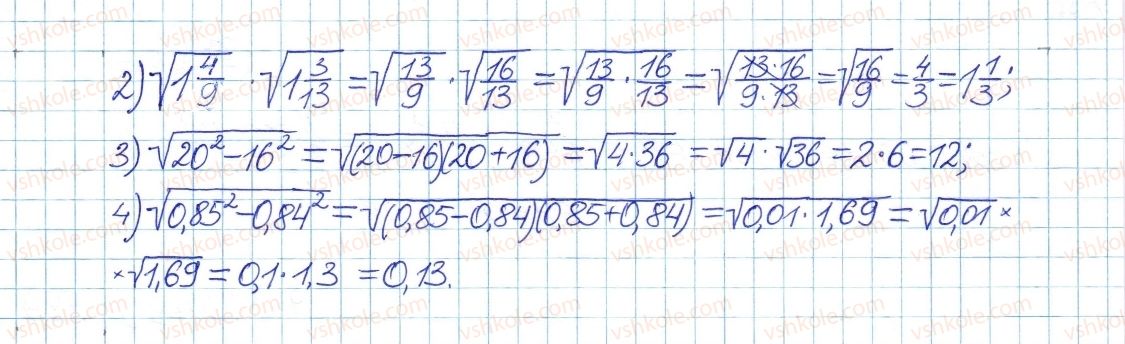 2) √(1 4/9) · √(1 3/13) = √(13/9) · √(16/13) = √(13/9 · 16/13) = √((13·16)/(9·13)) = √(16/9) = 4/3 = 1 1/3;
3) √(20² − 16²) = √((20−16)(20+16)) = √(4·36) = √4 · √36 = 2·6 = 12;
4) √(0,85² − 0,84²) = √((0,85−0,84)(0,85+0,84)) = √(0,01·1,69) = √0,01 ×
× √1,69 = 0,1·1,3 = 0,13.